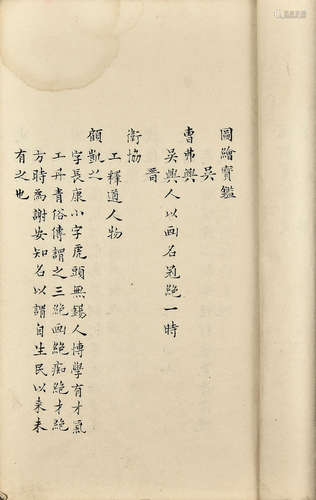 圖繪寶鑑
吳
曹弗興
吳興人以画名冠絕一時
晋
衛協
工釋道人物
顧凱之
字長康小字虎頭無錫人博學有才氣
工丹青俗傳謂之三絕画絕痴絕才絕
方時為謝安知名以謂自生民以来未
有之也